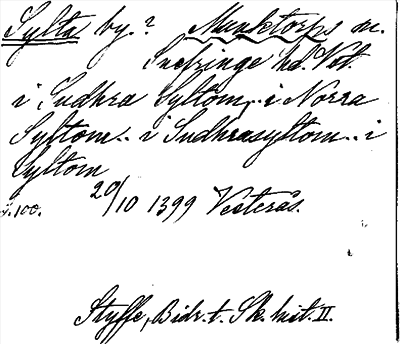 Sylta by.? Munktorps sn.
Snefringe hd. Vstl.
i Sudhra Syltom,.. i Norra
Syltom.. i Sudhrasyltom.. i
Syltom
s. 100. 20/10 1399 Vesterås.
Styffe, Bidr. t. Sk. hist. II.